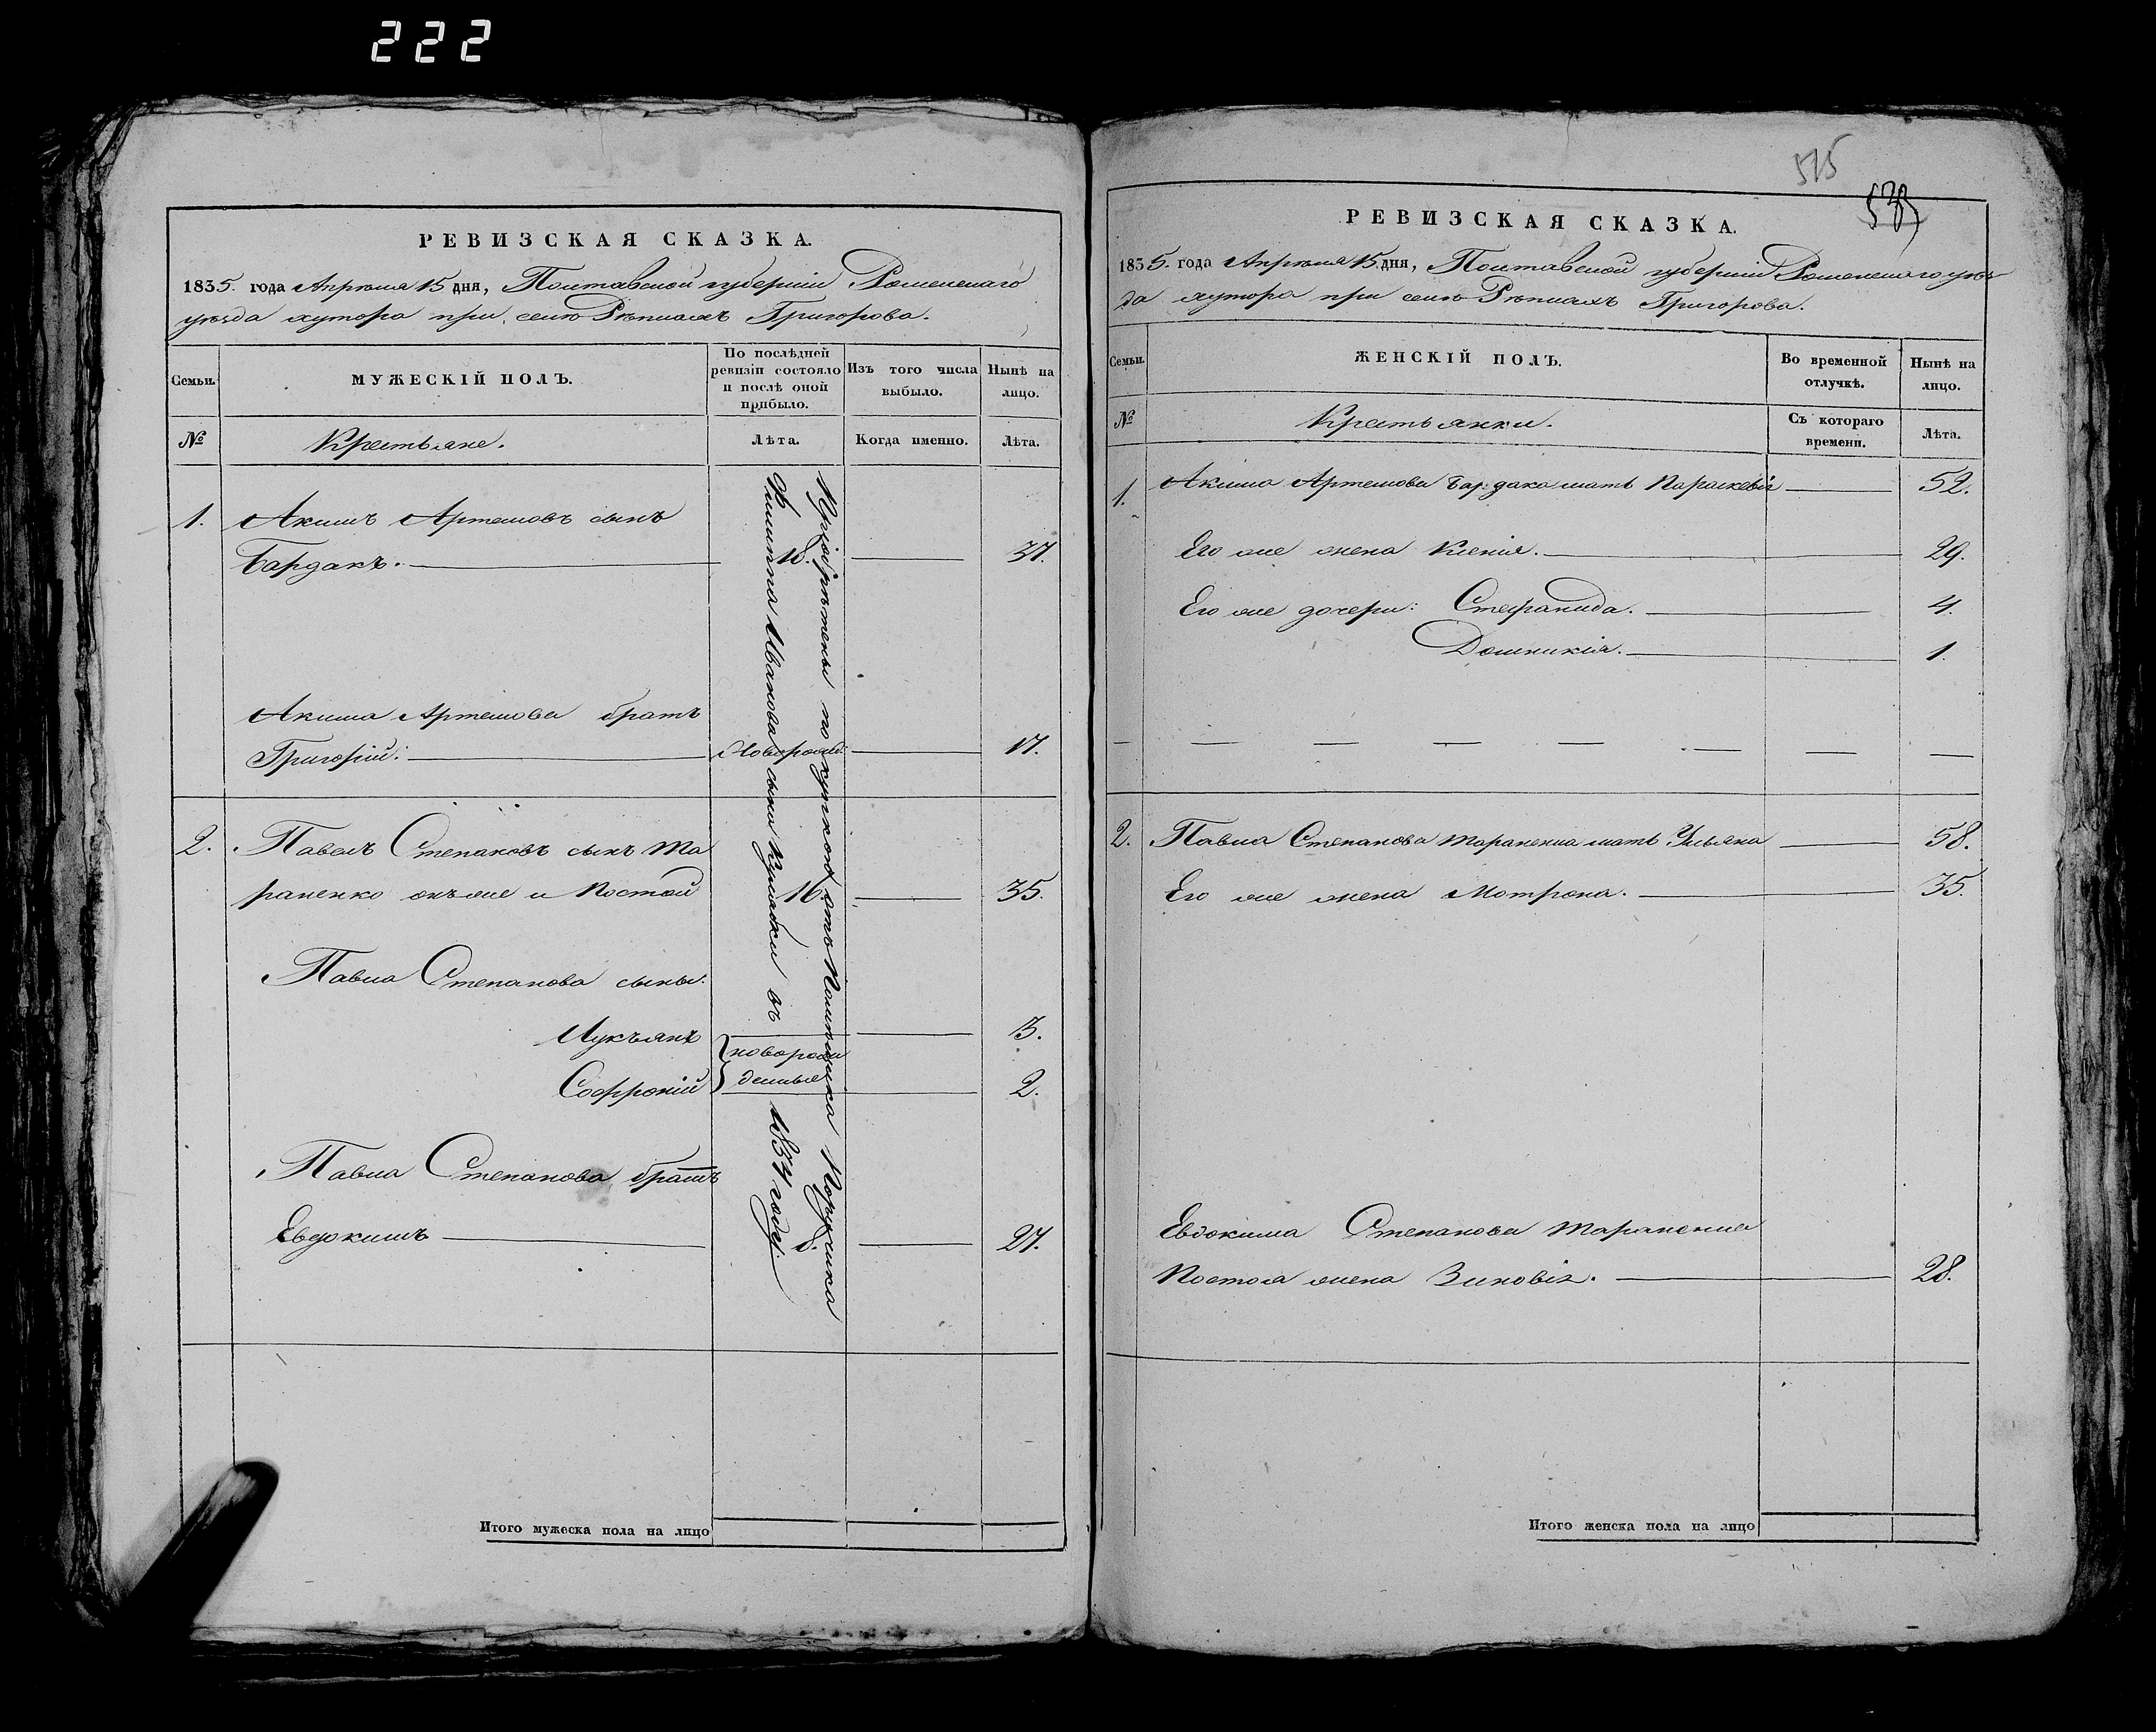 222
РЕВИЗСКАЯ СКАЗКА.
1835. года Апрѣля 15 дня, Полтавской губерніи Роменскаго
уѣзда хутора при селѣ Рѣпкахъ Григорова.
Семьи.
МУЖЕСКІЙ ПОЛЪ.
По послѣдней
ревизіи состояло
и послѣ оной
прибыло.
Изъ того числа
выбыло.
Нынѣ на
лицо.
№
Крестьяне.
Лѣта.
Когда именно.
Лѣта.
1. Акимъ Артемовъ сынъ
Бардакъ. 18. 37.
Акима Артемова братъ
Григорій: Новорожд: 17.
2. Павелъ Степановъ сынъ Та
раненко онъ же и Постой 16. 35.
Павла Степанова сыны:
Лукъянъ 3.
новорож
Софроній денные 2.
Павла Степанова братъ
Евдокимъ 8. 27.
Пріобрѣтены по купчкой отъ Помѣщика Поручика
Филиппа Иванова сына в 1834 году.
Итого мужеска пола на лицо
515
РЕВИЗСКАЯ СКАЗКА.
1835. года Апрѣля 15 дня, Полтавской губерніи Роменскаго уѣз
да хутора при селѣ Рѣпкахъ Григорова.
Семьи.
ЖЕНСКІЙ ПОЛЪ.
Во временной
отлучкѣ.
Нынѣ на
лицо.
№
Крестьянки.
Съ котораго
времени.
Лѣта.
1. Акима Артемова Бардака мать Параскевія 52.
Его же жена Ксенія. 29.
Его же дочери: Стефанида. 4.
Домникія. 1.
2. Павла Степанова Тараненка мать Ульяна 58.
Его же жена Мотрона. 35.
Евдокима Степанова Тараненка
Постоя жена Зиновія. 28.
Итого женска пола на лицо